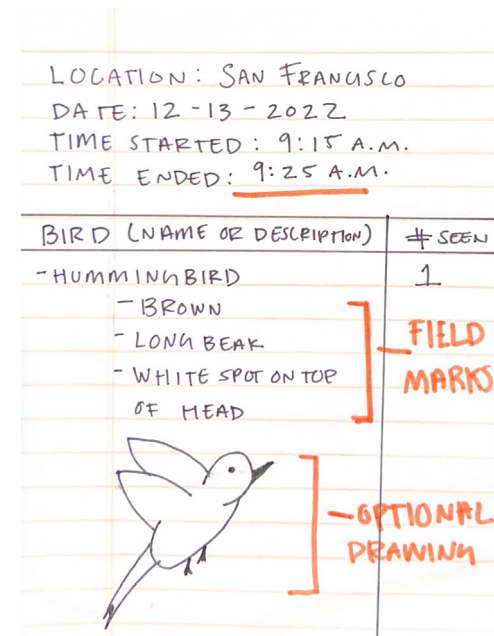 LOCATION: SAN FRANCISCO
DATE: 12-13-2022
TIME STARTED: 9:15 A.M.
TIME ENDED: 9:25 A.M.
BIRD (NAME OR DESCRIPTION) # SEEN
- HUMMINGBIRD 1
- BROWN
- LONG BEAK
- WHITE SPOT ON TOP
OF HEAD
FIELD
MARKS
- OPTIONAL
DRAWING